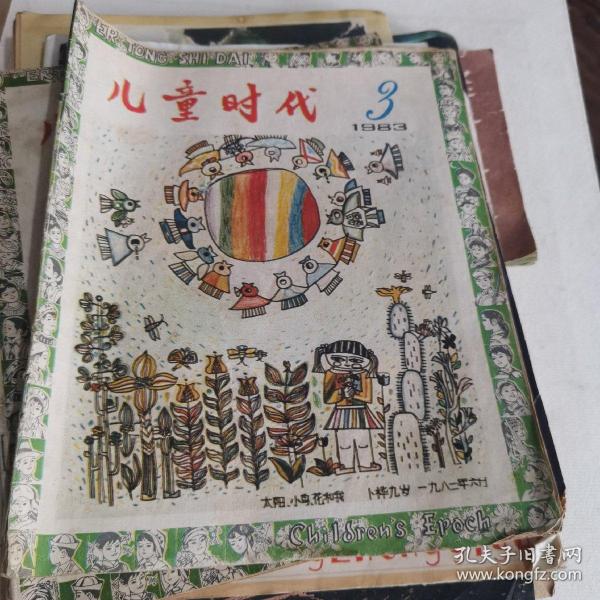 ER TONG SHI DAI
儿童时代
3
1983
太阳、小鸟、花和我 卜桦九岁 一九八二年六月
Children's Epoch
孔夫子旧书网
www.kongfz.com